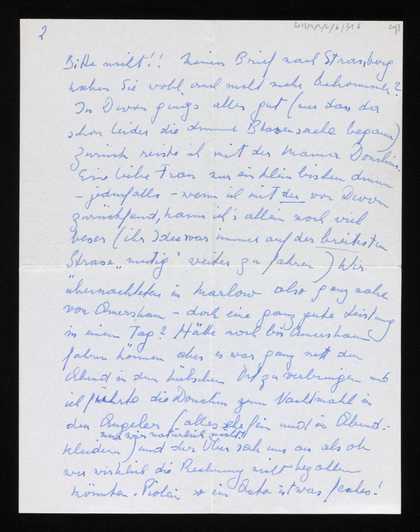 2
Bitte nicht!! Meinen Brief nach Strassberg
haben Sie wohl auch nicht mehr bekommen?
In Devon gings alles gut (nur dass da
schon leider die dumme Blasensache begann)
zurück reiste ich mit der Mamma Donchin.
Eine liebe Frau nur ein klein bischen dumm
- jedenfalls - wenn ich mit der von Devon
zurückfand, kann ich's allein noch viel
besser (ihr Idee war immer auf der breitesten
Strasse "mutig" weiter zu fahren) Wir
übernachteten in Marlow also ganz nahe
von Amersham - doch eine ganz gute Leistung
in einem Tag? Hätte noch bis Amersham
fahren können aber es war ganz nett den
Abend in dem hübschen Ort zu verbringen und
ich führte die Donchin zum Nachtmahl in
den Angeler (alles sehr fein und in Abend-
und wir natürlich nicht
kleidern) und der Ober sah uns an als ob
wir wirklich die Rechnung nicht bezahlen
könnten. ein so etwas fesches!